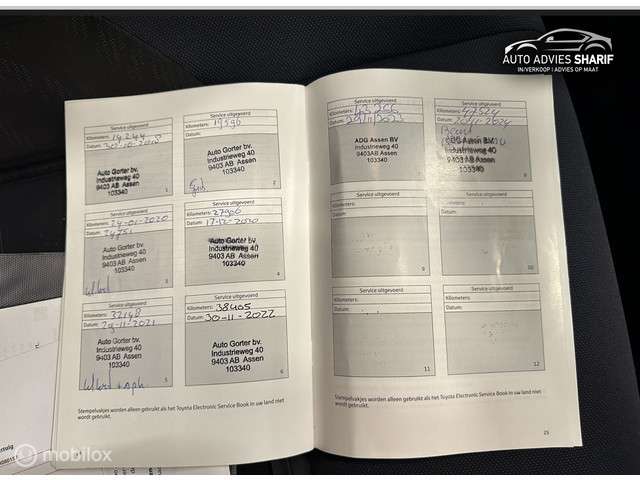 AUTO ADVIES SHARIF
IN/VERKOOP | ADVIES OP MAAT
Service uitgevoerd
Kilometers: 14244
Datum: 30-10-2018
Auto Gorter bv.
Industrieweg 40
9403 AB Assen
103340
1
Service uitgevoerd
Kilometers: 19590
Datum:
Auto Gorter bv.
Industrieweg 40
9403 AB Assen
103340
2
Service uitgevoerd
Kilometers: 24-01-2020
Datum: 24751
Auto Gorter bv.
Industrieweg 40
9403 AB Assen
103340
3
Service uitgevoerd
Kilometers: 27900
Datum: 17-12-2020
Auto Gorter bv.
Industrieweg 40
9403 AB Assen
103340
4
Service uitgevoerd
Kilometers: 32148
Datum: 29-11-2021
Auto Gorter bv.
Industrieweg 40
9403 AB Assen
103340
5
Service uitgevoerd
Kilometers: 38405
Datum: 30-11-2022
Auto Gorter bv.
Industrieweg 40
9403 AB Assen
103340
6
Stempelvakjes worden alleen gebruikt als het Toyota Electronic Service Book in uw land niet
wordt gebruikt.
Service uitgevoerd
Kilometers:
Datum:
ADG Assen BV
Industrieweg 40
9403AB Assen
103340
Service uitgevoerd
Kilometers: 47524
Datum:
ADG Assen BV
103340
8
Service uitgevoerd
Kilometers:
Datum:
9
Service uitgevoerd
Kilometers:
Datum:
10
Service uitgevoerd
Kilometers:
Datum:
11
Service uitgevoerd
Kilometers:
Datum:
12
Stempelvakjes worden alleen gebruikt als het Toyota Electronic Service Book in uw land niet
wordt gebruikt.
25
mobilox